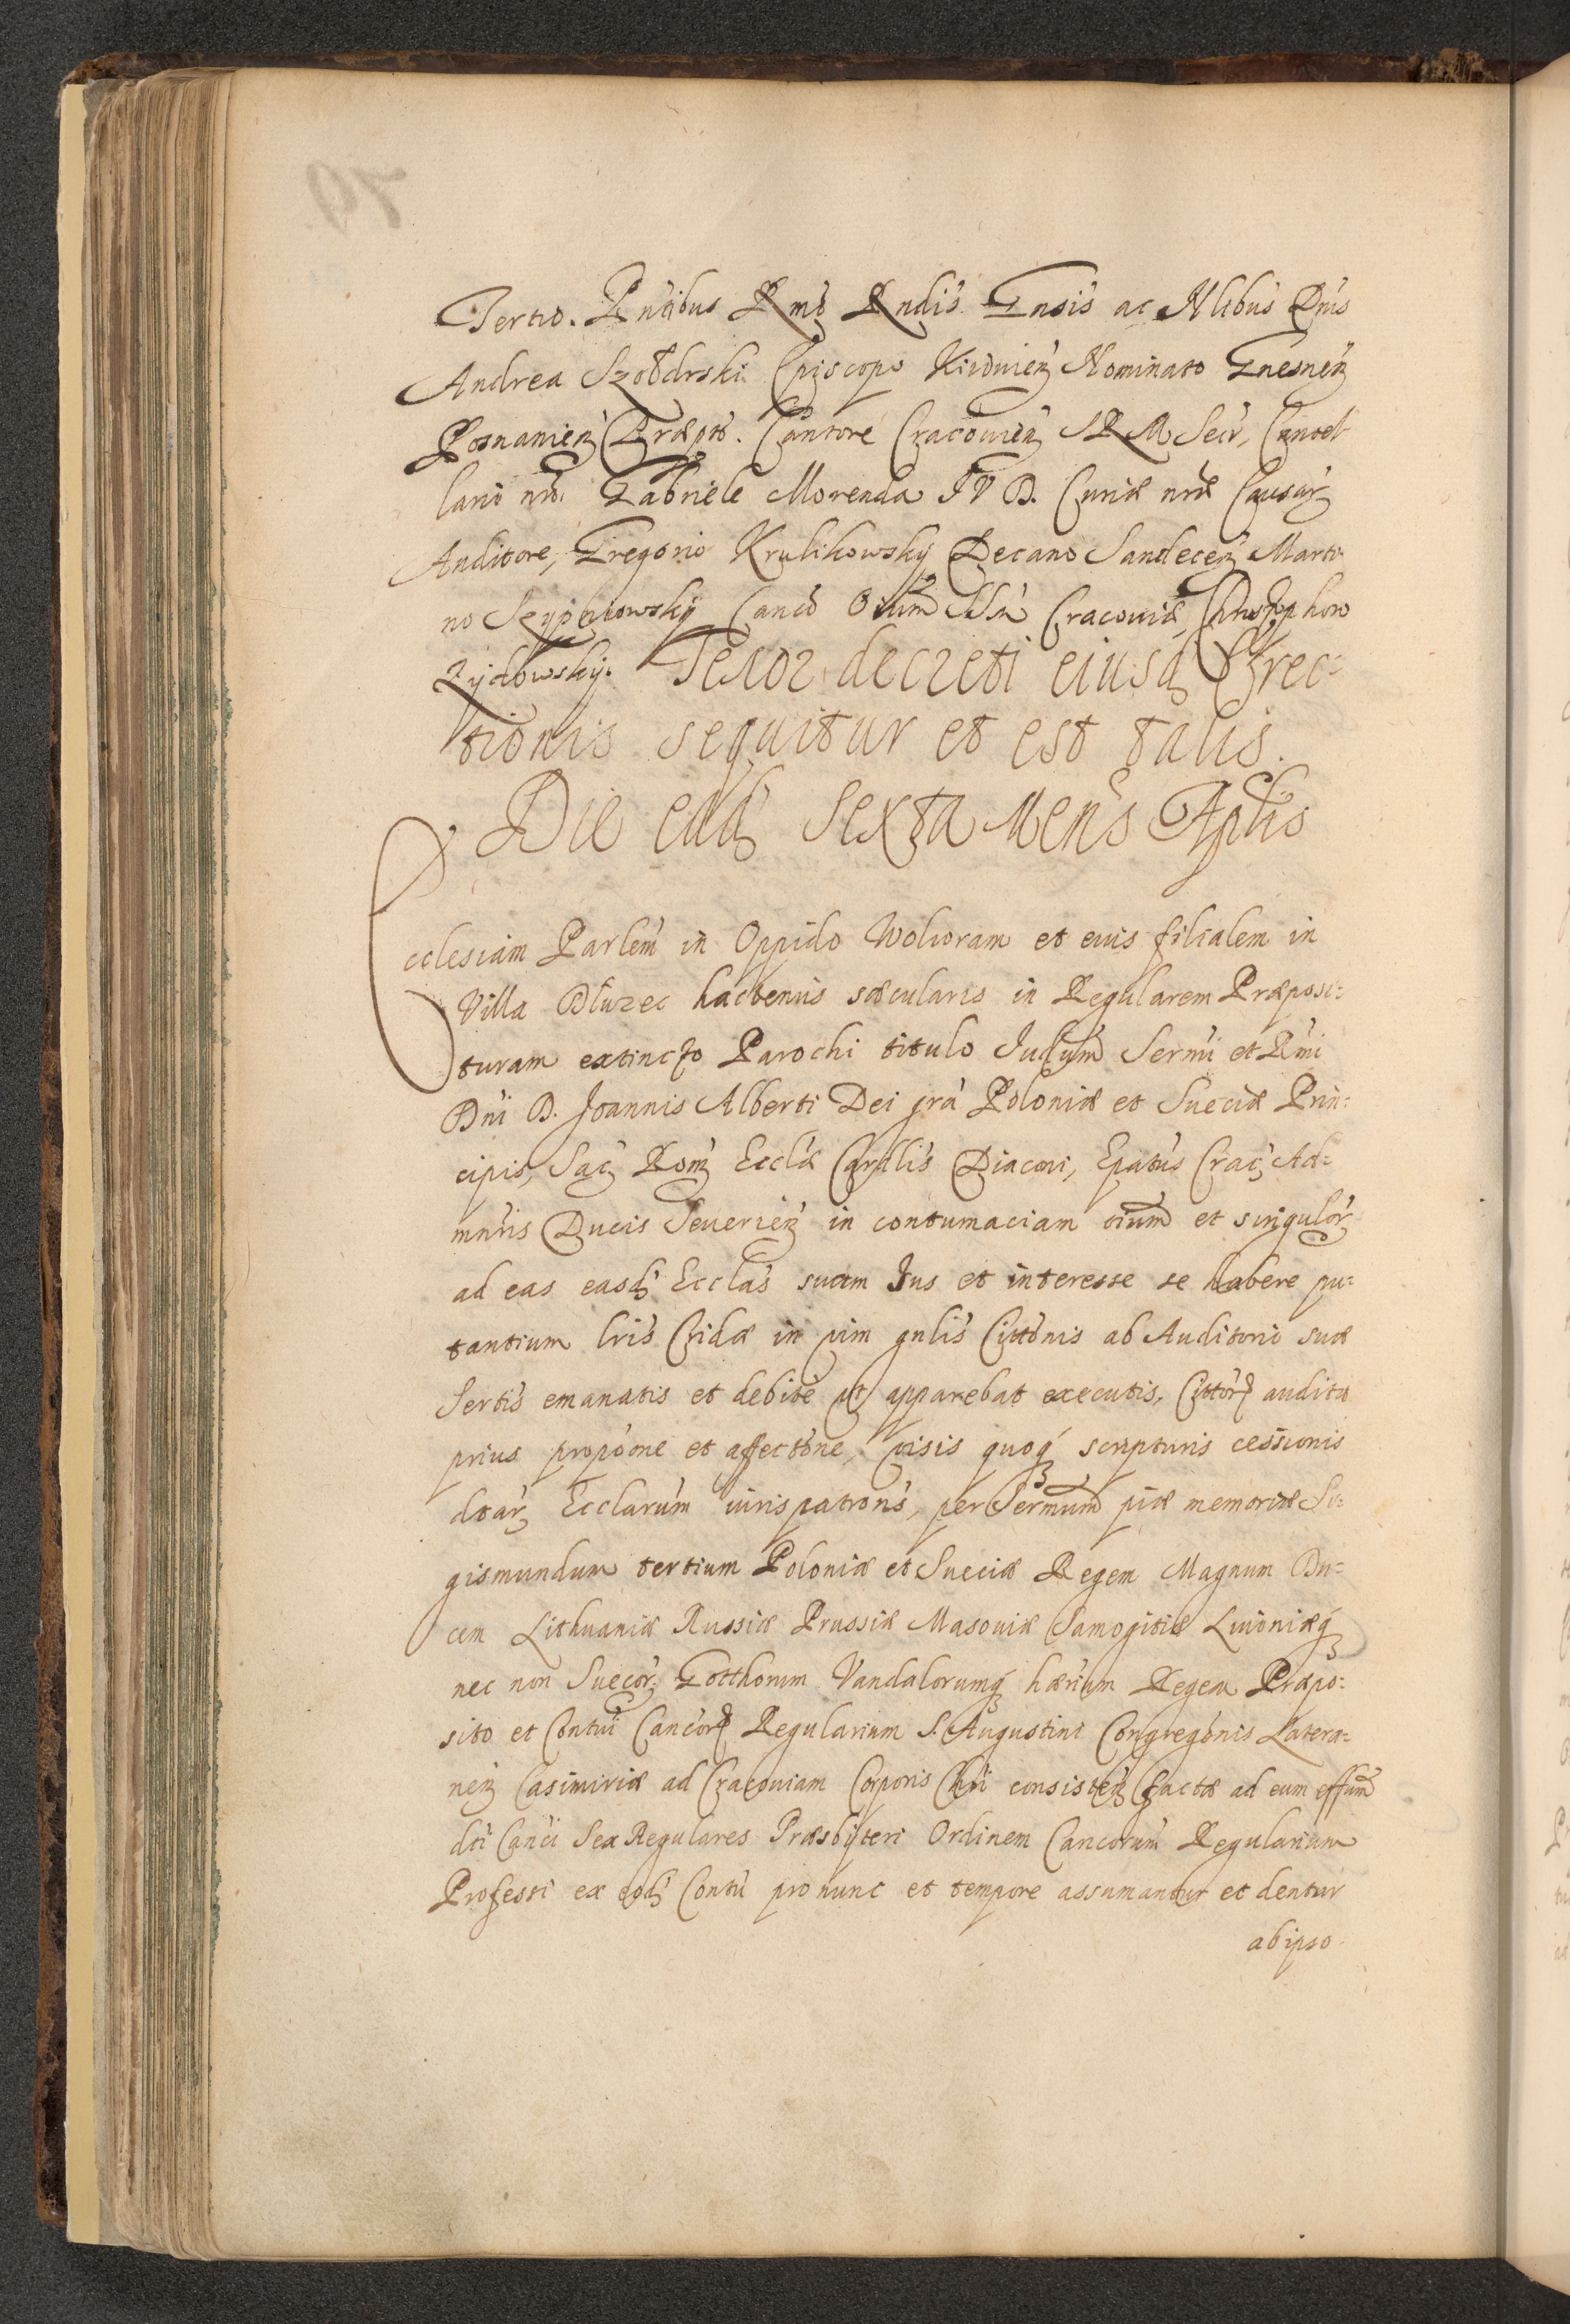 Tertio. Pntibus Rmo Rndis Gnosis ac Nlibus Dnis
Andrea Szołdrski Episcopo Kiiouien Nominato Gnesnen
Posnanien Præpto. Cantore Cracouien SRM Secr, Cancel
lario nro. Gabriele Morenda IVD. Curiæ nræ Causar
Auditore, Gregorio Krulikowsky Decano Sandecen Marti
no Canco Oium SSm Cracouiæ, Christophoro
Zydowsky. Tenor decreti eiusd Erec=
tionis sequitur et est talis.
Die ead sexta Mens Aplis
Ecclesiam Parlem in Oppido Wolioram et euis filialem in
Villa Dłuzec hactenus sæcularis in Regularem Præposi=
turam extincto Parochi titulo Iudium Sermi et Rmi
Dni D. Joannis Alberti Dei gra Poloniæ et Sueciæ Prin=
cipis, Sac Rom Ecclæ Cardlis Diaconi, Epatus Crac Ad=
mnris Ducis Seuerien in contumaciam oium et singulor
ad eas easd Ecclas suum Ius et interesse se habere pu=
tantium lris Cridæ in vim gnlis Cittonis ab Auditorio suæ
Sertis emanatis et debite ut apparebat executis, Cittor audita
prius propone et affectone, visis quoq scripturis cessionis
dtar Ecclarum iuris patrons, per Sermum piæ memoriæ Si=
gismundum tertium Poloniæ et Sueciæ Regem Magnum Du=
cem Lithuaniæ Russiæ Prussiæ Masouiæ Samogitiæ Liuoniæq
nec non Suecor Gotthorum Vandalorumq hærium Regem Præpo=
sito et Contui Cancor Regularium S. Augustini Congregonis Latera=
nen Casimiriæ ad Cracouiam Corporis Chri consisten factæ ad eum effum
dti Canci Sex Regulares Præsbyteri Ordinem Cancorum Regularium
Professi ex eod Contu pro nunc et tempore assumantur et dentur
ab ipso